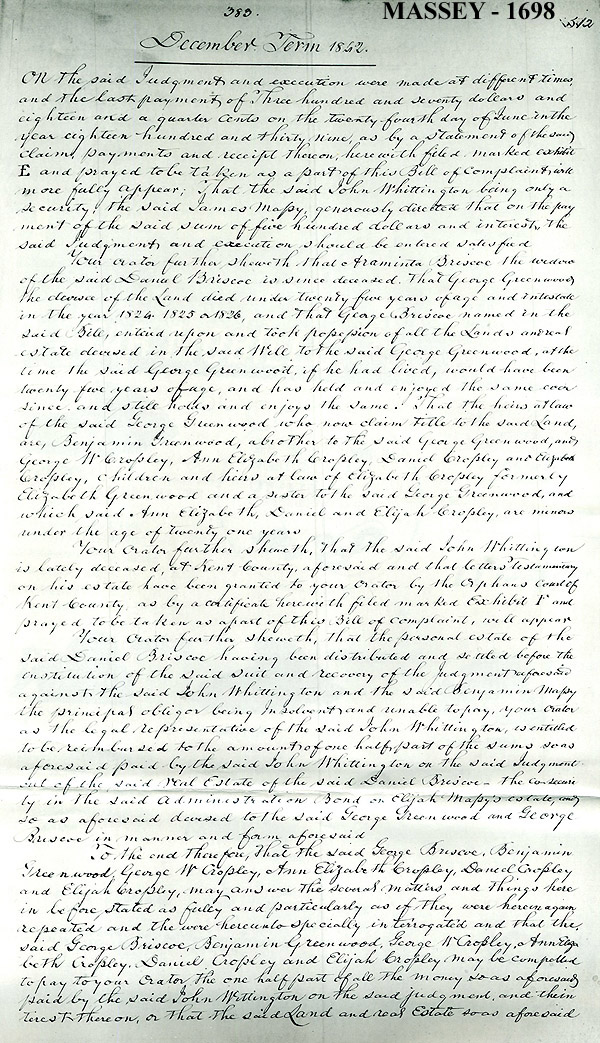 383.
MASSEY - 1698
512
December Term 1852.
On the said Judgment and execution were made at different times,
and the last payment of Three hundred and seventy dollars and
eighteen and a quarter Cents on the twenty fourth day of June in the
year eighteen hundred and thirty nine, as by a statement of the said
Claim, payments and receipt thereon, herewith filed marked exhibit
E and prayed to be taken as a part of this Bill of Complaint, will
more fully appear; That the said John Whittington being only a
security, the said James Massy, generously directed that on the pay
ment of the said sum of five hundred dollars and interest, the
said Judgment, and execution should be entered satisfied
Your Orator further sheweth that Araminta Briscoe the widow
of the said Daniel Briscoe is since deceased. That George Greenwood
the devisee of the Land died under twenty five years of age and intestate
in the year 1824 1825 or 1826, and that George Briscoe named in the
said Bill, entered upon and took possession of all the Lands and real
estate devised in the said Will, to the said George Greenwood, at the
time the said George Greenwood, if he had lived, would have been
twenty five years of age, and has held and enjoyed the same ever
since, and still holds and enjoys the same. That the heirs at law
of the said George Greenwood who now claim title to the said Land,
are, Benjamin Greenwood, a brother to the said George Greenwood, and
George W Cropley, Ann Elizabeth Cropley, Daniel Cropley and Elijah
Cropley, Children and heirs at law of Elizabeth Cropley formerly
Elizabeth Greenwood and a sister to the said George Greenwood, and
which said Ann Elizabeth, Daniel and Elijah Cropley, are minors
under the age of twenty one years
Your Orator further sheweth, that the said John Whittington
is lately deceased, at Kent County, aforesaid and that letters testamentary
on his estate have been granted to your Orator by the Orphans Court of
Kent County, as by a certificate herewith filed marked Exhibit F and
prayed to be taken as a part of this Bill of Complaint, will appear
Your Orator further sheweth, that the personal estate of the
said Daniel Briscoe having been distributed and settled before the
institution of the said suit and recovery of the Judgment aforesaid
against the said John Whittington and the said Benjamin Massy
the principal obligor being Insolvent and unable to pay, your Orator
as the legal representative of the said John Whittington, is entitled
to be reimbursed to the amount of one half part of the sums so as
aforesaid paid by the said John Whittington on the said Judgment
out of the said real Estate of the said Daniel Briscoe - the co-securi
ty in the said Administration Bond on Elijah Massy's estate, and
so as aforesaid devised to the said George Greenwood and George
Briscoe in manner and form aforesaid
To the end therefore, that the said George Briscoe, Benjamin
Greenwood, George W Cropley, Ann Elizabeth Cropley, Daniel Cropley
and Elijah Cropley, may answer the several matters and things here
in before stated as fully and particularly as if they were herein again
repeated and the were hereunto specially interrogated and that the
said George Briscoe, Benjamin Greenwood, George W Cropley, Ann Eliza
beth Cropley, Daniel Cropley and Elijah Cropley may be compelled
to pay to your Orator, the one half part of all the money so as aforesaid
paid by the said John Wittington on the said judgment, and the in
terest thereon, or that the said Land and real Estate so as aforesaid